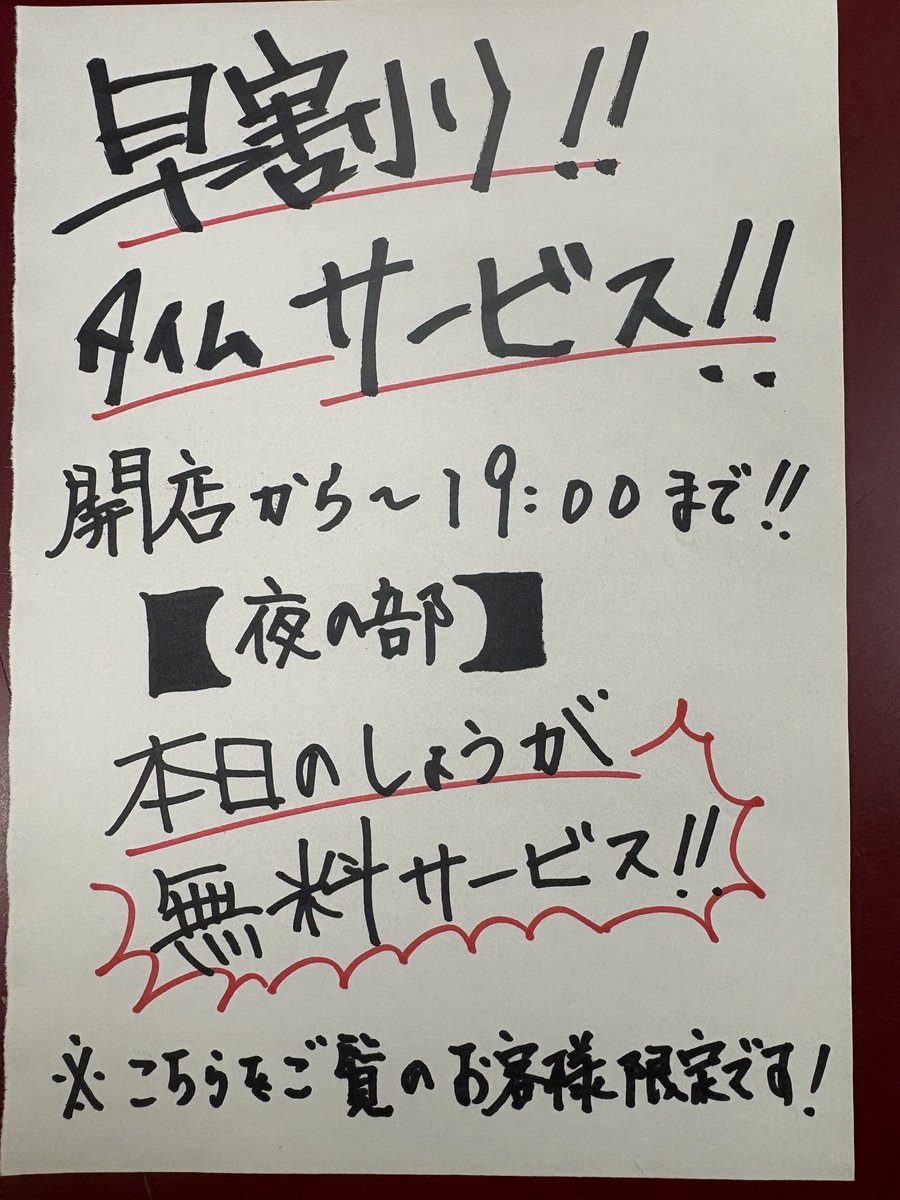 早割り!!
タイムサービス!!
開店から〜19:00まで!!
【夜の部】
本日のしょうが
無料サービス!!
※こちらをご覧のお客様限定です!